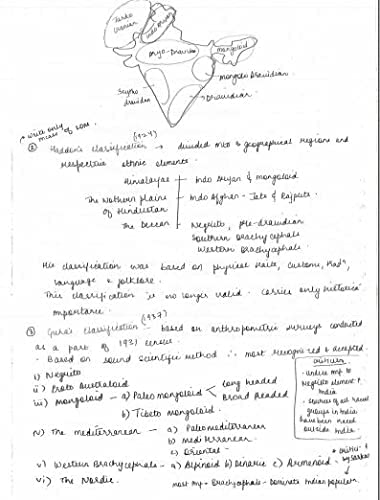 Turko Iranian
Indo Aryan
Aryo-Dravidian
mongoloid
mongolo Dravidian
Scytho dravidian
Dravidian
write only
② Haddon's classification (1924) → divided into 3 geographical regions and
respective ethnic elements.
Himalayas — Indo Aryan & mongoloid
The Northern plains of Hindustan — Indo Afghan - Jats & Rajputs.
The Deccan — Negrito, Pre-dravidian
Southern Brachycephals
Western Brachycephals.
His classification was based on physical traits, customs,
language & folklore.
This classification is no longer valid. Carries only historical
importance.
③ Guha's classification (1937) - based on anthropometric surveys conducted
as a part of 1931 census.
- Based on sound scientific method ∴ most recognized & accepted.
i) Negrito
ii) Proto Australoid
iii) mongoloid - a) Paleo mongoloid < long headed
Broad headed
b) Tibeto mongoloid.
iv) The mediterranean - a) Paleomediterranean
b) mediterranean
c) Oriental -
v) Western Brachycephals - a) Alpinoid b) Dinaric c) Armenoid
vi) The Nordic.
criticism
- Undue imp to
Negrito element
India.
- of all racial
groups in India
have been
outside India.
critics
by Sarkar
most imp - Brachycephals - dominate Indian populatn.